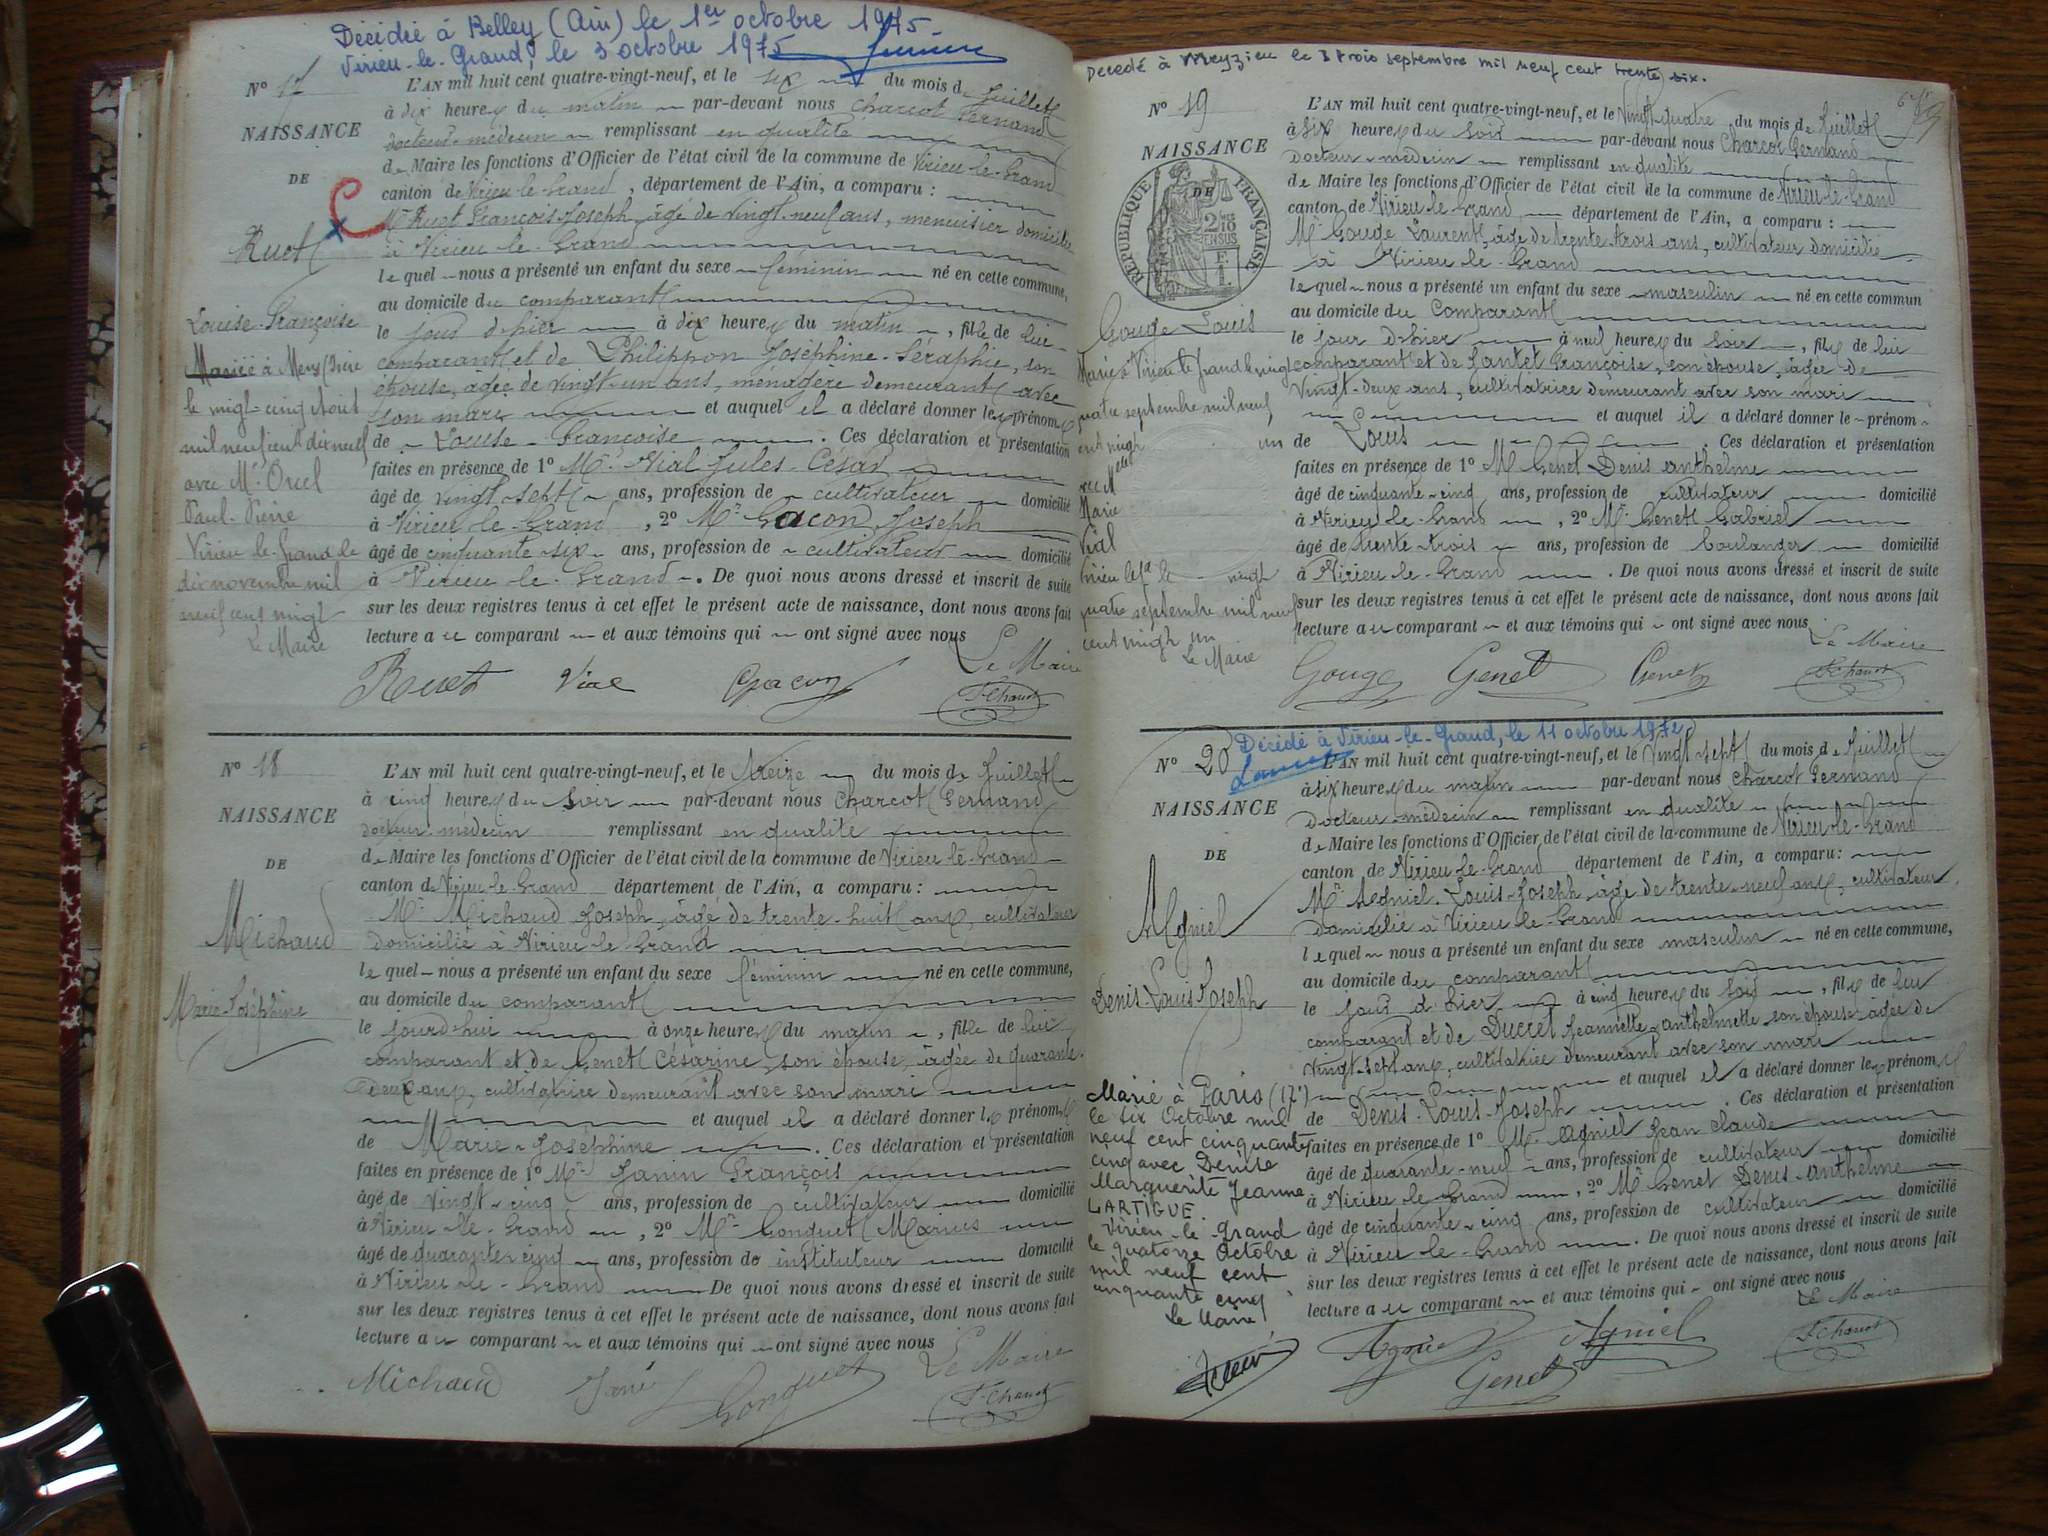 Décédée à Belley (Ain) le 1er octobre 1975.
Virieu-le-Grand, le 3 octobre 1975
N° 17
NAISSANCE
DE
Ruet
Louise-Françoise
Mariée à Mens (Isère
le vingt-cinq Août
mil neuf cent dix neuf
avec Mr
Paul-Pierre
Virieu-le-Grand le
dix novembre mil
neuf cent vingt
Le Maire
L'AN mil huit cent quatre-vingt-neuf, et le six du mois de Juillet
à dix heures du matin par-devant nous Charcot Fernand
docteur-médecin remplissant en qualité
de Maire les fonctions d'Officier de l'état civil de la commune de Virieu-le-Grand
canton de Virieu-le-Grand, département de l'Ain, a comparu :
Mr Ruet François-Joseph, âgé de vingt-neuf ans, menuisier domicilié
à Virieu-le-Grand
lequel nous a présenté un enfant du sexe féminin né en cette commune,
au domicile du comparant
le jour d'hier à dix heures du matin, fille de lui
comparant et de Philippon Joséphine-Séraphie, son
épouse, âgée de vingt-un ans, ménagère demeurant avec
son mari et auquel il a déclaré donner les prénoms
de Louise-Françoise. Ces déclaration et présentation
faites en présence de 1° Mr Vial Jules-César
âgé de vingt-sept ans, profession de cultivateur domicilié
à Virieu-le-Grand, 2° Mr Gacon Joseph
âgé de cinquante-six ans, profession de cultivateur domicilié
à Virieu-le-Grand. De quoi nous avons dressé et inscrit de suite
sur les deux registres tenus à cet effet le présent acte de naissance, dont nous avons fait
lecture au comparant et aux témoins qui ont signé avec nous
Le Maire
Ruet Vial Gacon F. Charcot
N° 18
NAISSANCE
DE
Michaud
Marie-Joséphine
L'AN mil huit cent quatre-vingt-neuf, et le treize du mois de Juillet
à cinq heures du soir par-devant nous Charcot Fernand
docteur-médecin remplissant en qualité
de Maire les fonctions d'Officier de l'état civil de la commune de Virieu-le-Grand
canton de Virieu-le-Grand département de l'Ain, a comparu :
Mr Michaud Joseph, âgé de trente-huit ans, cultivateur
domicilié à Virieu-le-Grand
lequel nous a présenté un enfant du sexe féminin né en cette commune,
au domicile du comparant
le jourd'hui à onze heures du matin, fille de lui
comparant et de Genet Césarine, son épouse, âgée de quarante-
deux ans, cultivatrice demeurant avec son mari
et auquel il a déclaré donner les prénoms
de Marie-Joséphine. Ces déclaration et présentation
faites en présence de 1° Mr Janin François
âgé de vingt-cinq ans, profession de cultivateur domicilié
à Virieu-le-Grand, 2° Mr Gonguet Marius
âgé de quarante-cinq ans, profession de instituteur domicilié
à Virieu-le-Grand De quoi nous avons dressé et inscrit de suite
sur les deux registres tenus à cet effet le présent acte de naissance, dont nous avons fait
lecture au comparant et aux témoins qui ont signé avec nous
Le Maire
Michaud Gonguet F. Charcot
Décédé à Meyzieu le trois septembre mil neuf cent trente six.
N° 19
NAISSANCE
DE
RÉPUBLIQUE FRANÇAISE
Gouge Louis
Marié à Virieu-le-Grand le vingt
quatre septembre mil neuf
cent vingt un
avec Melle
Marie
Vial
Virieu le gd le vingt
quatre septembre mil neuf
cent vingt un
Le Maire
L'AN mil huit cent quatre-vingt-neuf, et le vingt-quatre du mois de Juillet
à six heures du soir par-devant nous Charcot Fernand
docteur-médecin remplissant en qualité
de Maire les fonctions d'Officier de l'état civil de la commune de Virieu-le-Grand
canton de Virieu-le-Grand département de l'Ain, a comparu :
Mr Gouge Laurent, âgé de trente-trois ans, cultivateur domicilié
à Virieu-le-Grand
lequel nous a présenté un enfant du sexe masculin né en cette commun
au domicile du comparant
le jour d'hier à neuf heures du soir, fils de lui
comparant et de Jantet Françoise, son épouse, âgée de
vingt-deux ans, cultivatrice demeurant avec son mari
et auquel il a déclaré donner le prénom
de Louis. Ces déclaration et présentation
faites en présence de 1° M Genet Denis anthelme
âgé de cinquante-cinq ans, profession de cultivateur domicilié
à Virieu-le-Grand, 2° Mr Genet Gabriel
âgé de trente-trois ans, profession de boulanger domicilié
à Virieu-le-Grand. De quoi nous avons dressé et inscrit de suite
sur les deux registres tenus à cet effet le présent acte de naissance, dont nous avons fait
lecture au comparant et aux témoins qui ont signé avec nous
Le Maire
Gouge Genet Genet F. Charcot
Décédé à Virieu-le-Grand, le 11 octobre 1972
N° 20
NAISSANCE
DE
Agniel
Denis-Louis-Joseph
Marié à Paris (17e)
le six Octobre mil
neuf cent cinquante
cinq avec Denise
Marguerite Jeanne
LARTIGUE.
Virieu-le-Grand
le quatorze Octobre
mil neuf cent
cinquante cinq
Le Maire
L'AN mil huit cent quatre-vingt-neuf, et le vingt-sept du mois de Juillet
à six heures du matin par-devant nous Charcot Fernand
docteur-médecin remplissant en qualité
de Maire les fonctions d'Officier de l'état civil de la commune de Virieu-le-Grand
canton de Virieu-le-Grand département de l'Ain, a comparu :
Mr Agniel Louis-Joseph, âgé de trente-neuf ans, cultivateur,
domicilié à Virieu-le-Grand
lequel nous a présenté un enfant du sexe masculin né en cette commune,
au domicile du comparant
le jour d'hier à cinq heures du soir, fils de lui
comparant et de Ducret Jeannette-anthelmette son épouse âgée de
vingt-sept ans, cultivatrice demeurant avec son mari
et auquel il a déclaré donner les prénoms
de Denis-Louis-Joseph. Ces déclaration et présentation
faites en présence de 1° Mr Agniel Jean Claude
âgé de quarante-neuf ans, profession de cultivateur domicilié
à Virieu-le-Grand, 2° Mr Genet Denis-anthelme
âgé de cinquante-cinq ans, profession de cultivateur domicilié
à Virieu-le-Grand. De quoi nous avons dressé et inscrit de suite
sur les deux registres tenus à cet effet le présent acte de naissance, dont nous avons fait
lecture au comparant et aux témoins qui ont signé avec nous
Le Maire
Agniel Agniel F. Charcot
Genet